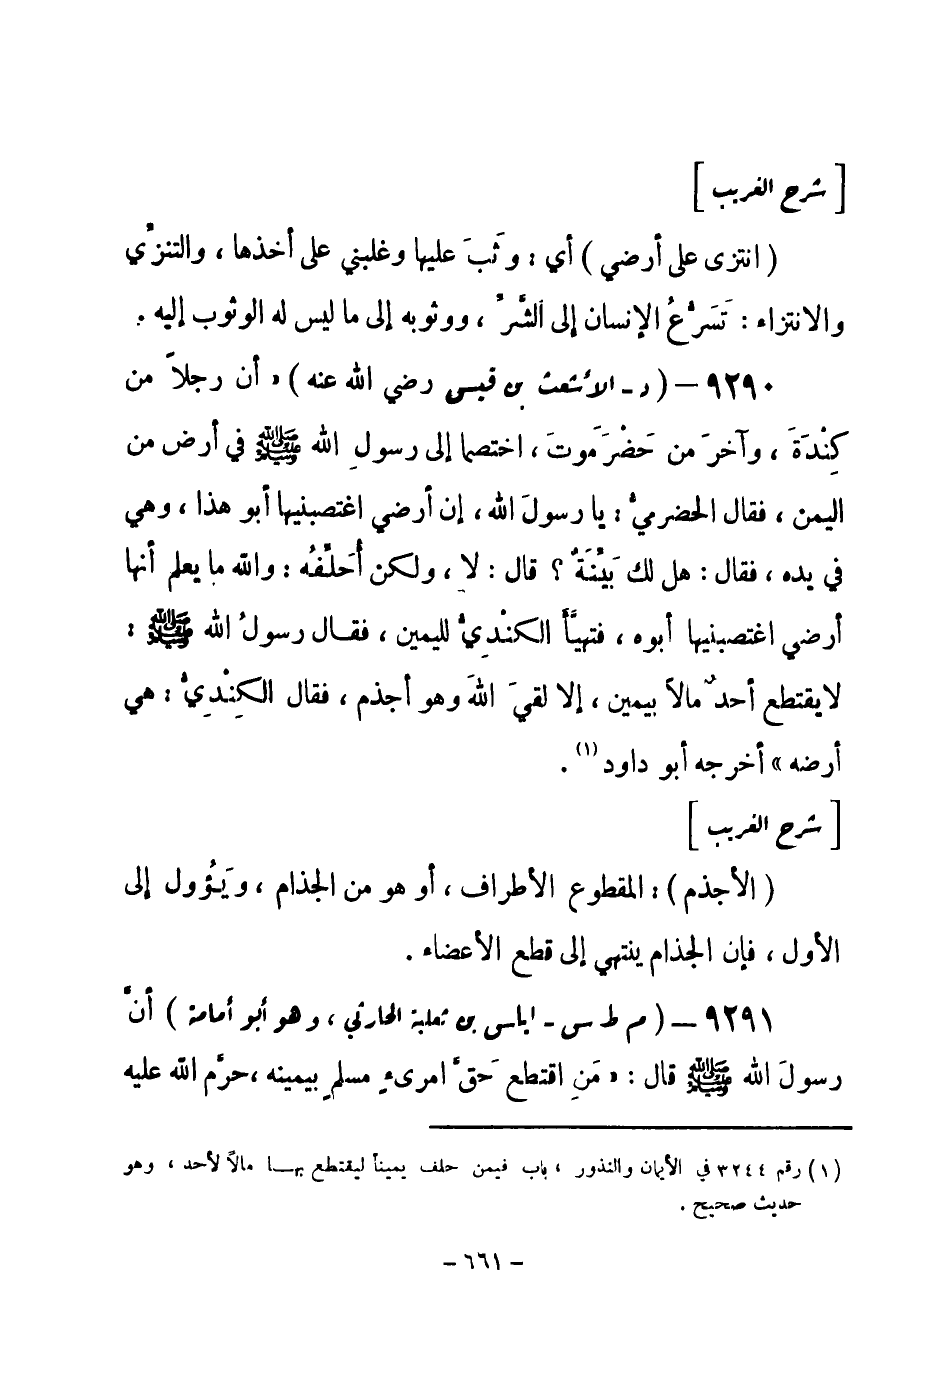 [ شرح الغريب ]
( انتزى على أرضي ) أي : وَثَبَ عليها وغلبني على أخذها ، والتنزِّي
والانتزاء : تَسَرُّعُ الإنسان إلى الشَّرِّ ، ووثوبه إلى ما ليس له الوثوب إليه .
٩٢٩٠ – ( د - الأشعث بن قيس رضي الله عنه ) « أن رجلاً من
كِنْدَةَ ، وآخرَ من حَضْرَموتَ ، اختصما إلى رسولِ الله ﷺ في أرض من
اليمن ، فقال الحضرميُّ : يا رسولَ الله ، إن أرضي اغتصبنيها أبو هذا ، وهي
في يده ، فقال : هل لك بَيِّنَةٌ ؟ قال : لا ، ولكن أُحَلِّفُه : والله ما يعلم أنها
أرضي اغتصبنيها أبوه ، فتهيَّأَ الكنْدِيُّ لليمين ، فقـال رسولُ الله ﷺ :
لا يقتطع أحدٌ مالاً بيمين ، إلا لقيَ اللهَ وهو أجذم ، فقال الكِنْدِيُّ : هي
أرضه » أخرجه أبو داود (١) .
[ شرح الغريب ]
( الأجذم ) : المقطوع الأطراف ، أو هو من الجذام ، ويَؤُول إلى
الأول ، فإن الجذام ينتهي إلى قطع الأعضاء .
٩٢٩١ – ( م ط س - إياس بن ثعلبة الحارثي ، وهو أبو أمامة ) أنَّ
رسولَ الله ﷺ قال : « مَنِ اقتطع حَقَّ امرىءٍ مسلمٍ بيمينه ، حرَّم الله عليه
(١) رقم ٣٢٤٤ في الأيمان والنذور ، باب فيمن حلف يميناً ليقتطع بهـا مالاً لأحد ، وهو
حديث صحيح .
– ٦٦١ –